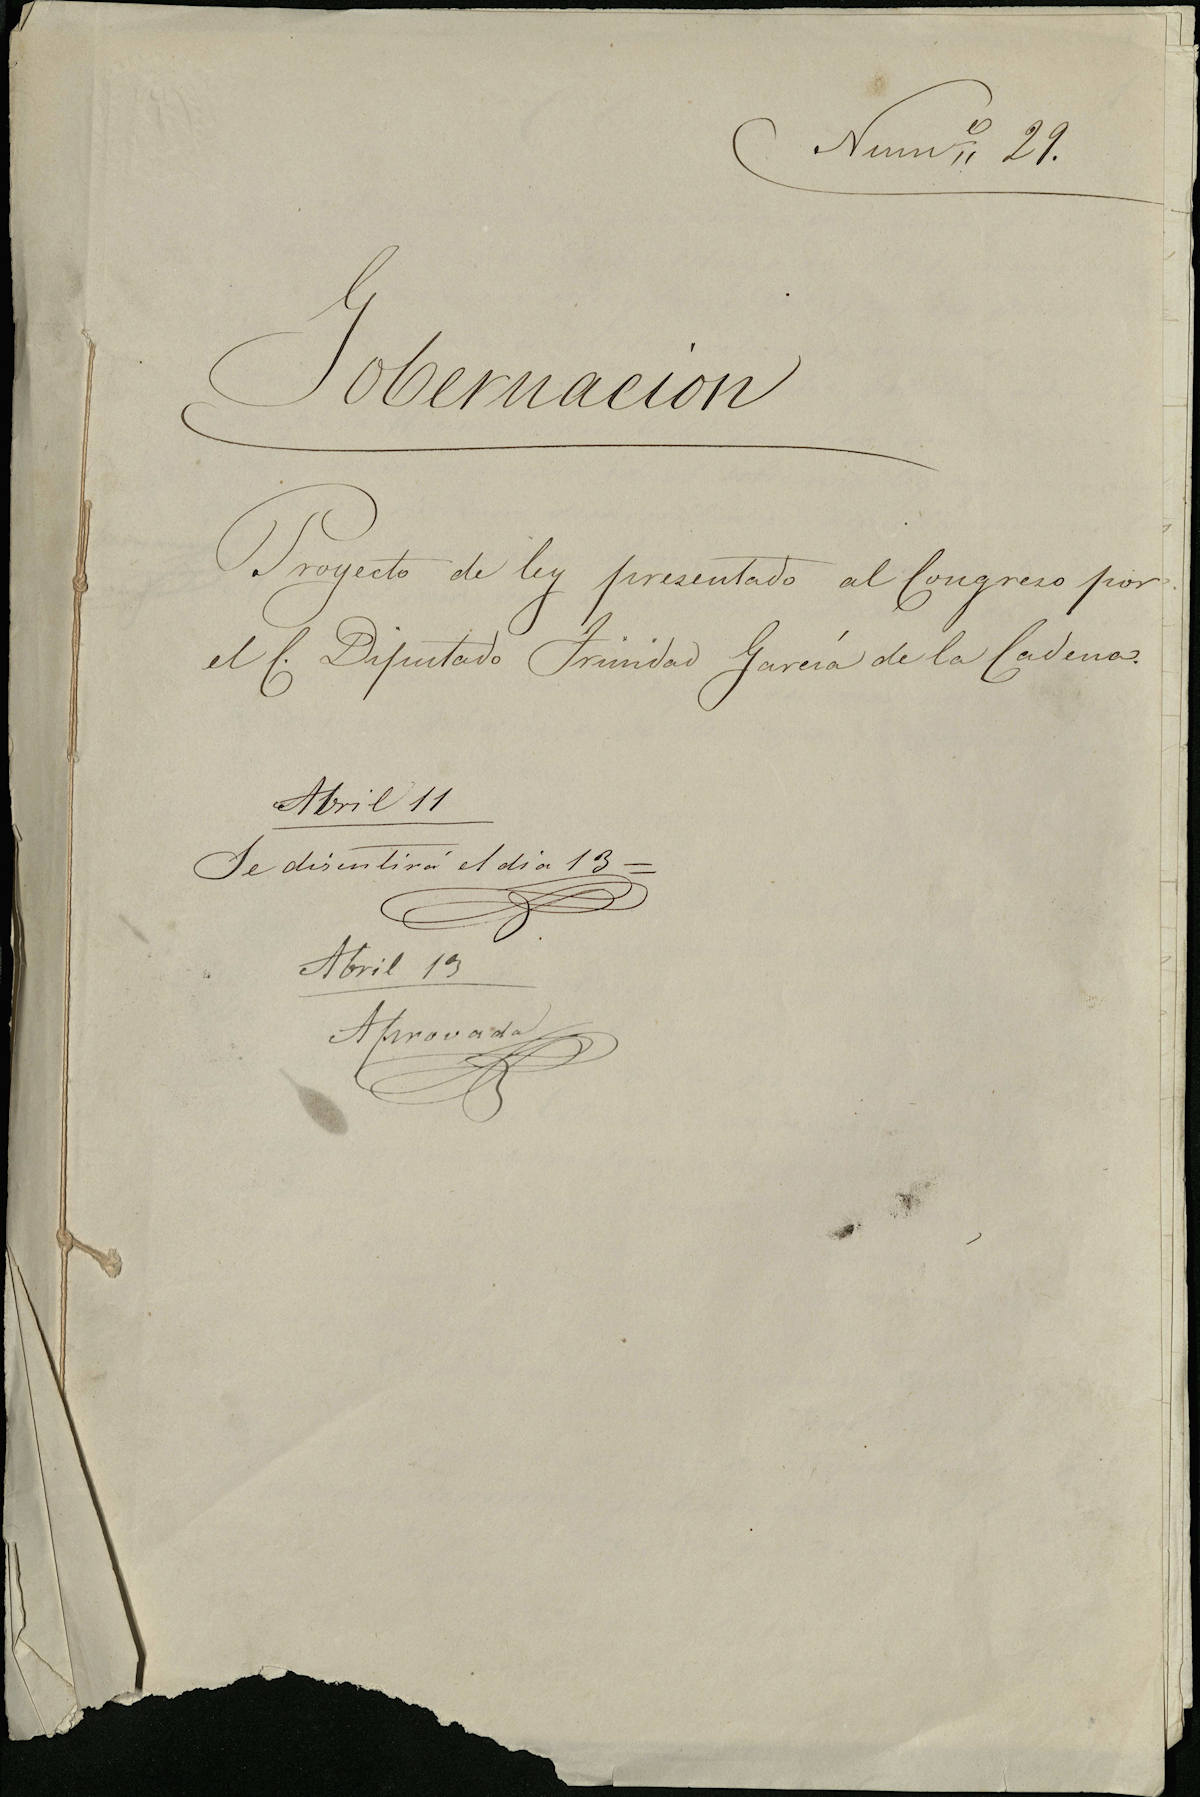 Numº 29.
Gobernacion
Proyecto de ley presentado al Congreso por
el C. Diputado Trinidad García de la Cadena.
Abril 11
Se discutirá el dia 13=
Abril 13
Aprovada